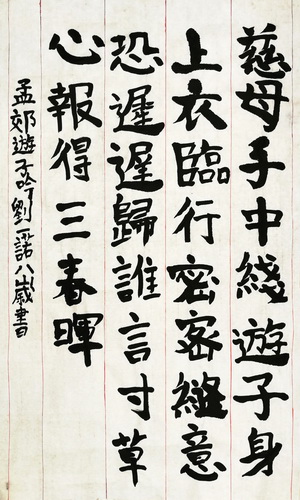 慈母手中綫遊子身
上衣臨行密密縫意
恐遲遲歸誰言寸草
心報得三春暉
孟郊遊子吟劉一諾八歲書